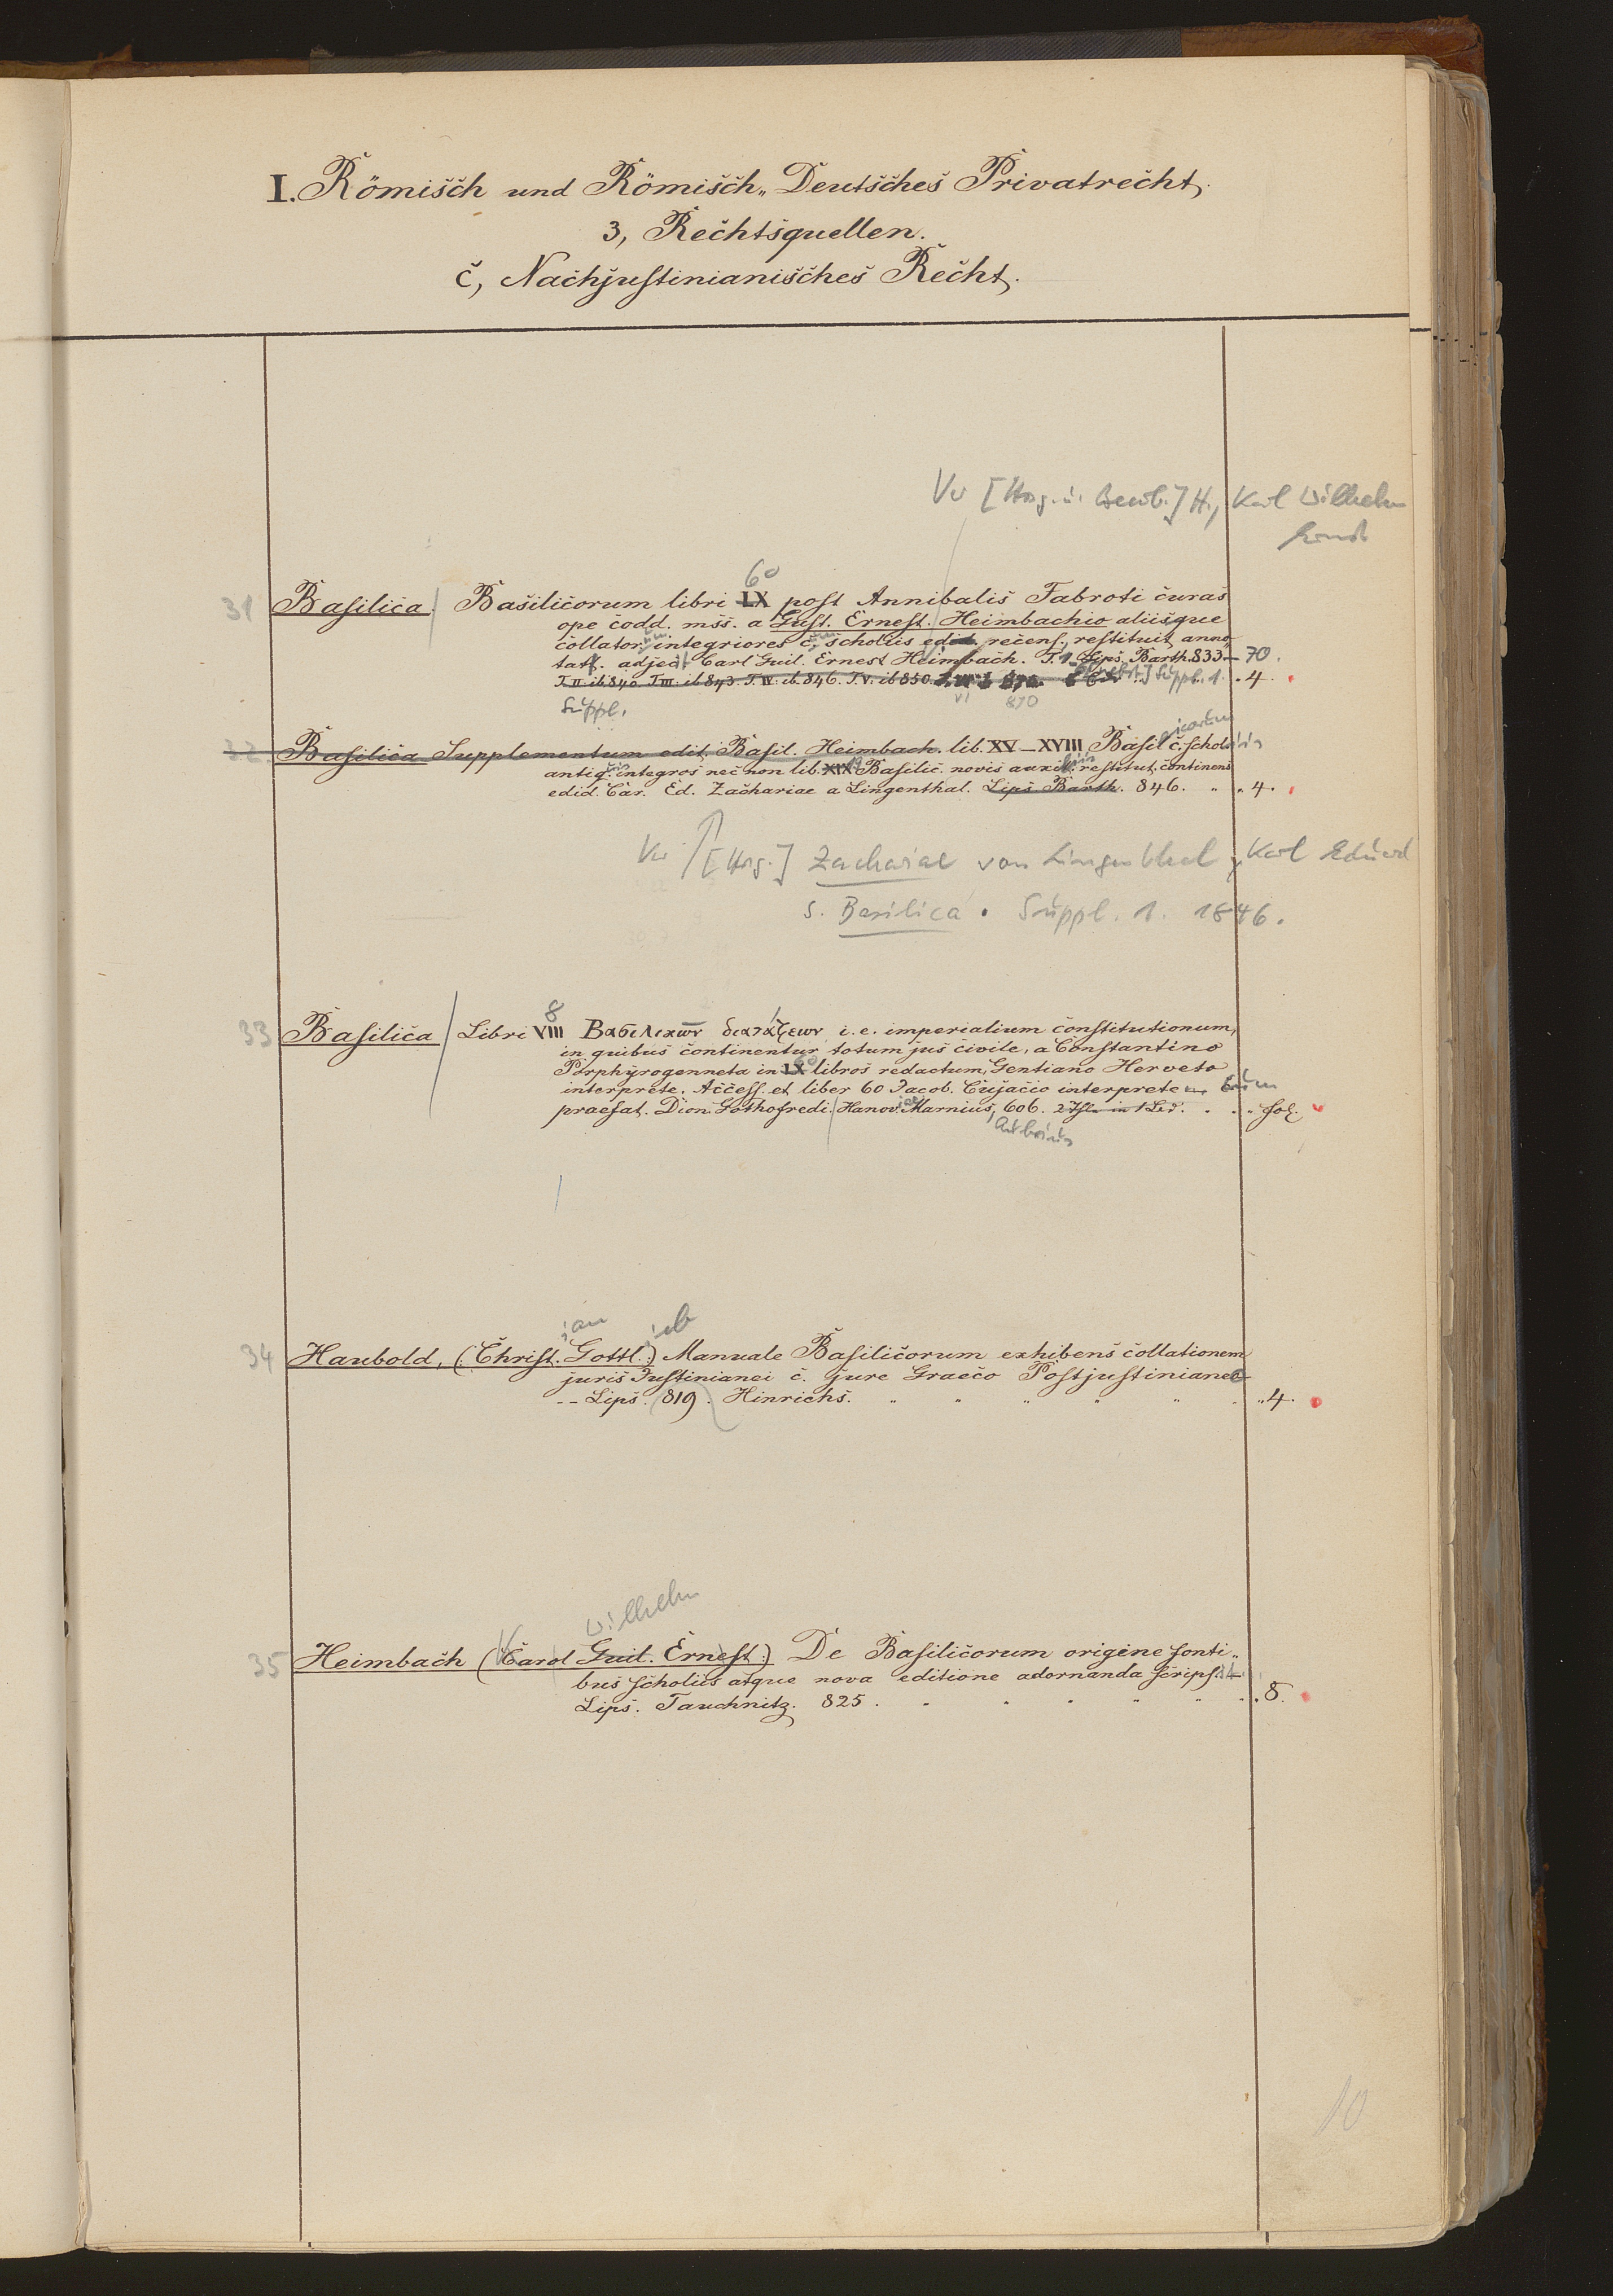 I. Römisch und Römisch„ Deutsches Privatrecht.
3, Rechtsquellen.
c, Nachjustinianisches Recht.
Vw [Hrsg. u. Bearb.] H., Karl Wilhelm
Ernst
60
31 Basilica. Basilicorum libri LX post Annibalis Fabroti curas
ope codd. mss. a Gust. Ernest. Heimbachio aliisque
collator. integriores c. scholiis edid. recens., restituit, anno„
tatt. adjecit Carl Guil. Ernest Heimbach. T. 1- Lips. Barth. 833 – 70.
T. II. ib. 840. T. III. ib 843. T. IV. ib. 846. T. V. ib 850. Suppl. 1. „ 4.
Suppl. VI 870
32 Basilica Supplementum edit. Basil. Heimbach. lib. XV–XVIII Basilicorum c. scholiis
antiq. integros nec non lib. XIX Basilic. novis auxiliis restitut. continens
edid. Car. Ed. Zachariae a Lingenthal. Lips Barth. 846. „ „ 4.
Vw [Hrsg.] Zachariae von Lingenthal, Karl Eduard
s. Basilica. Suppl. 1. 1846.
8
33 Basilica Libri VIII Βασιλικῶν διατάξεων i. e. imperialium constitutionum,
in quibus continentur totum jus civile, a Constantino
Porphyrogenneta in LX libros redactum, Gentiano Herveto
interprete. Access. et liber 60 Jacob. Cujacio interprete cum
praefat. Dion. Gothofredi. Hanoviae Marnius, 606. 2 Thle in 1 Bd. . . „ fol.
Aubrius
ian ieb
34 Haubold, (: Christ. Gottl. :) Manuale Basilicorum exhibens collationem
juris Justinianei c. jure Graeco Postjustinianeo
-- Lips. 819. Hinrichs. „ „ „ „ „ „ 4.
Wilhelm
35 Heimbach (: Carol Guil. Ernest :) De Basilicorum origine fonti„
bus scholiis atque nova editione adornanda scripsit
Lips. Tauchnitz. 825. „ „ „ „ „ „ 8.
10